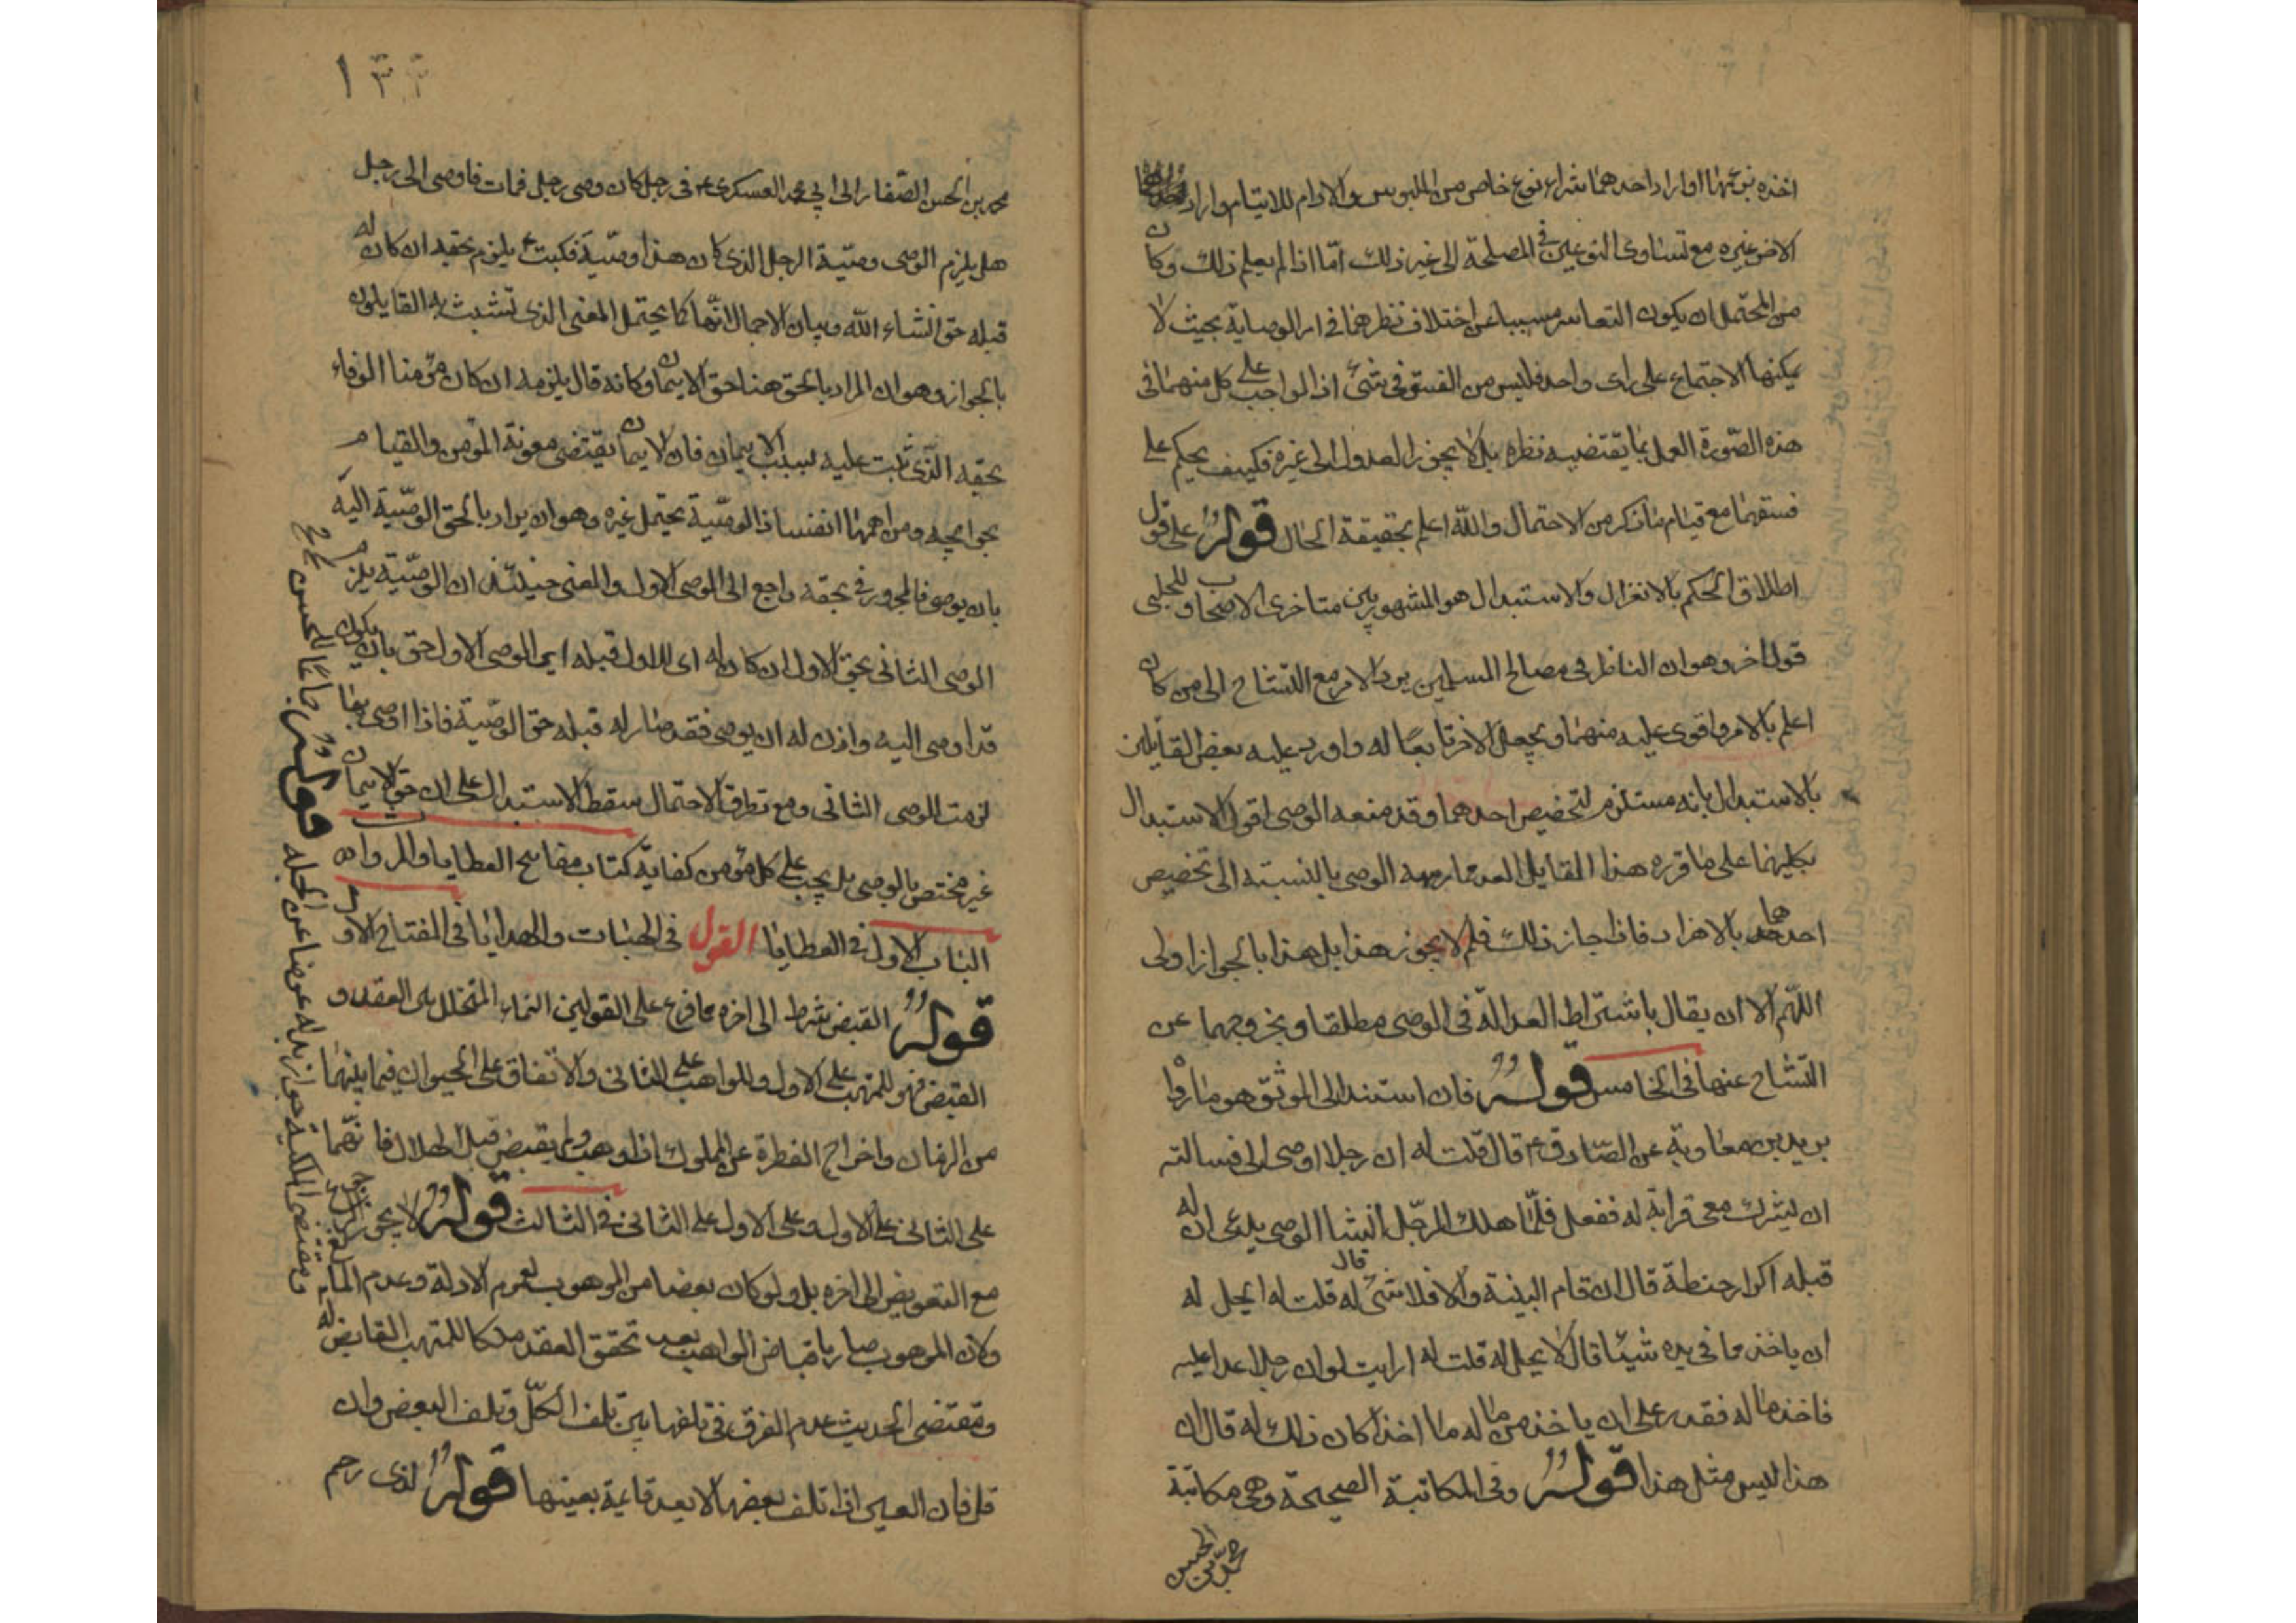 اخذه بنوعها او اراد احدهما شراء نوع خاص من الملبوس والادام للايتام واراد
الاخر غيره مع تساوى النوعين فى المصلحة الى غير ذلك امّا اذا لم يعلم ذلك وكان
من المحتمل ان يكون التعاسر مسببا عن اختلاف نظرهما فى امر الوصاية بحيث لا
يمكنهما الاجتماع على راى واحد فليس من الفسق فى شئ اذ الواجب على كل منهما فى
هذه الصّورة العمل بما يقتضيه نظره بل لا يجوز له العدول الى غيره فكيف يحكم على
فسقهما مع قيام ما ذكر من الاحتمال والله اعلم بحقيقة الحال قوله على قول
اطلاق الحكم بالانعزال والاستبدال هو المشهور بين متاخرى الاصحاب وللحلبى
قول اخر وهو ان الناظر فى مصالح المسلمين يرد الامر مع التشاح الى من كان
اعلم بالامر واقوى عليه منهما ويجعل الاخر تابعًا له واورد عليه بعض القايلين
بالاستبدال بانه مستلزم لتخصيص احدهما وقد منعه الموصى اقول الاستبدال
بكليهما على ما قرره هذا القايل ابعد مما رسمه الموصى بالنسبة الى تخصيص
احدهما بالافراد فاذا جاز ذلك فلم لا يجوز هذا بل هذا بالجواز اولى
اللّهم الا ان يقال باشتراط العدالة فى الوصى مطلقا وبخروجهما عن
التشاح عنها فى الخامس قوله فان استند الى الموثق هو ما رواه
بريد بن معاوية عن الصّادق ع قال قلت له ان رجلا اوصى الى فسالته
ان يشرك معى قرابة له ففعل فلمّا هلك الرجل انشا الوصى يدعى ان له
قبله اكرار حنطة قال ان قام البينة والا فلا شئ له قال قلت له ايحل له
ان ياخذ مما فى يده شيئا قال لا يحل له قلت له ارايت لو ان رجلا عدا عليه
فاخذ ماله فقدر على ان ياخذ من ماله ما اخذ اكان ذلك له قال ان
هذا ليس مثل هذا قوله وفى المكاتبة الصحيحة وهى مكاتبة
محمد بن الحسن
١٣٣
محمد بن الحسن الصّفار الى ابى محمد العسكرى ع فى رجل كان وصى رجل فمات فاوصى الى رجل
هل يلزم الوصى وصيّة الرجل الذى كان هذا وصيّه فكتب ع يلزم بحقه ان كان له
قبله حق انشاء الله وبيان الاجمال انّها كما يحتمل المعنى الذى تشبث به القايلون
بالجواز وهو ان المراد بالحق هنا حق الايمان وكانه قال يلزمه ان كان مؤمنا الوفاء
بحقه الّذى ثبت عليه بسبب الايمان فان الايمان يقتضى معونة المؤمن والقيام
بحوايجه ومن اهمها انفساذ الوصيّة يحتمل غيره وهو ان يراد بالحق الوصيّة اليه
بان يوصى فالمجرور فى بحقه راجع الى الموصى الاول والمعنى حينئذ ان الوصيّة يلزم
الوصى الثانى بحق الاول ان كان له اى للاول قبله اى الموصى الاول حق بان يكون
قد اوصى اليه واذن له ان يوصى فقد صار له قبله حق الوصيّة فاذا اوصى بها
لزمت الوصى الثانى ومع تطرق الاحتمال سقط الاستدلال على ان حق الايمان
غير مختص بالوصى بل يجب على كل مؤمن كفاية كتاب مفاتيح العطايا والمروات
الباب الاول فى العطايا القول فى الهبات والهدايا فى المفتاح الاول
قوله القبض شرط الى اخره مما فرع على القولين النماء المتخلل بين العقد و
القبض فهو للمتهب على الاول وللواهب على الثانى والانفاق على الحيوان فيما بينهما
من الزمان واخراج الفطرة عن المملوك اذا وهب ولم يقبض قبل الهلال فانّهما
على الثانى على الاول وعلى الاول على الثانى فى الثالث قوله لا يجوز
مع التعويض الى اخره بل ولو كان بعضا من الموهوب لعموم الادلة وعدم المانع
وكان الموهوب صار باقباض الواهب بعد تحقق العقد ملكا للمتهب القابض له
ومقتضى الحديث عدم الفرق فى تلفها بين تلف الكلّ وتلف البعض وان
قل فان العين اذا تلف بعضها لا يعد قايمة بعينها قوله لذى رحم
ومقتضى الملكية جواز بذله عوضا عن الجملة قوله جامعًا للحسن